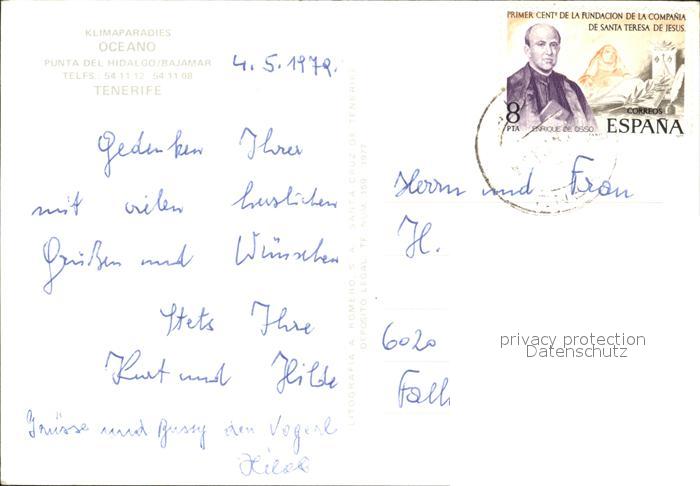 KLIMAPARADIES
OCEANO
PUNTA DEL HIDALGO/BAJAMAR
TELFS.: 54 11 12 54 11 08
TENERIFE
PRIMER CENTº DE LA FUNDACION DE LA COMPAÑIA
DE SANTA TERESA DE JESUS.
8
PTA
ENRIQUE DE OSSO
CORREOS
ESPAÑA
Gedenken Ihrer
mit vielen herzlichen
Grüßen und Wünschen
Stets Ihre
Kurt und Hilde
Grüsse und Bussy den Vogerl
Hilde
LITOGRAFIA A. ROMERO, S. A. SANTA CRUZ DE TENERIFE
DEPOSITO LEGAL TF. NUM. 1977
Herrn und Frau
H.
6020
privacy protection
Datenschutz